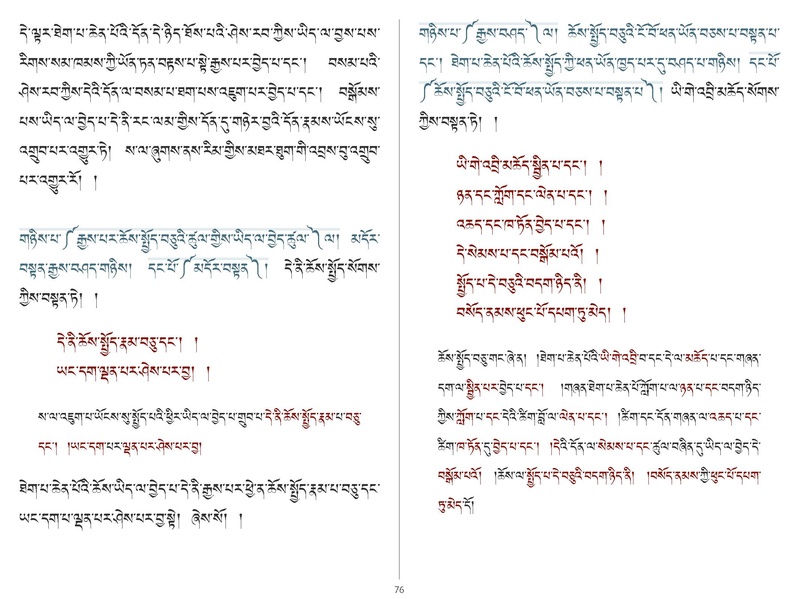 དེ་ལྟར་ཐེག་པ་ཆེན་པོའི་དོན་དེ་ཉིད་ཐོས་པའི་ཤེས་རབ་ཀྱིས་ཡིད་ལ་བྱས་པས་
རིགས་སམ་ཁམས་ཀྱི་ཡོན་ཏན་བརྟས་པ་སྟེ་རྒྱས་པར་བྱེད་པ་དང་། བསམ་པའི་
ཤེས་རབ་ཀྱིས་དེའི་དོན་ལ་བསམ་པ་ཐག་པས་འཇུག་པར་བྱེད་པ་དང་། བསྒོམས་
པས་ཡིད་ལ་བྱེད་པ་དེ་ནི་རང་ལམ་གྱིས་དོན་དུ་གཉེར་བྱའི་དོན་རྣམས་ཡོངས་སུ་
འགྲུབ་པར་འགྱུར་ཏེ། ས་ལ་ཞུགས་ནས་རིམ་གྱིས་མཐར་ཐུག་གི་འབྲས་བུ་འགྲུབ་
པར་འགྱུར་རོ། །
གཉིས་པ་༼རྒྱས་པར་ཆོས་སྤྱོད་བཅུའི་ཚུལ་གྱིས་ཡིད་ལ་བྱེད་ཚུལ་༽ལ། མདོར་
བསྟན་རྒྱས་བཤད་གཉིས། དང་པོ་༼མདོར་བསྟན་༽། དེ་ནི་ཆོས་སྤྱོད་སོགས་
ཀྱིས་བསྟན་ཏེ། །
དེ་ནི་ཆོས་སྤྱོད་རྣམ་བཅུ་དང་། །
ཡང་དག་ལྡན་པར་ཤེས་པར་བྱ། །
ས་ལ་འཇུག་པ་ཡོངས་སུ་སྤྱོད་པའི་ཕྱིར་ཡིད་ལ་བྱེད་པ་གྲུབ་པ་དེ་ནི་ཆོས་སྤྱོད་རྣམ་པ་བཅུ་
དང་། །ཡང་དག་པར་ལྡན་པར་ཤེས་པར་བྱ།
ཐེག་པ་ཆེན་པོའི་ཆོས་ཡིད་ལ་བྱེད་པ་དེ་ནི་རྒྱས་པར་ཕྱེ་ན་ཆོས་སྤྱོད་རྣམ་པ་བཅུ་དང་
ཡང་དག་པ་ལྡན་པར་ཤེས་པར་བྱ་སྟེ། ཞེས་སོ། །
གཉིས་པ་༼རྒྱས་བཤད་༽ལ། ཆོས་སྤྱོད་བཅུའི་ངོ་བོ་ཕན་ཡོན་བཅས་པ་བསྟན་པ་
དང་། ཐེག་པ་ཆེན་པོའི་ཆོས་སྤྱོད་ཀྱི་ཕན་ཡོན་ཁྱད་པར་དུ་བཤད་པ་གཉིས། དང་པོ་
༼ཆོས་སྤྱོད་བཅུའི་ངོ་བོ་ཕན་ཡོན་བཅས་པ་བསྟན་པ་༽། ཡི་གེ་འབྲི་མཆོད་སོགས་
ཀྱིས་བསྟན་ཏེ། །
ཡི་གེ་འབྲི་མཆོད་སྦྱིན་པ་དང་། །
ཉན་དང་ཀློག་དང་ལེན་པ་དང་། །
འཆད་དང་ཁ་ཏོན་བྱེད་པ་དང་། །
དེ་སེམས་པ་དང་བསྒོམ་པའོ། །
སྤྱོད་པ་དེ་བཅུའི་བདག་ཉིད་ནི། །
བསོད་ནམས་ཕུང་པོ་དཔག་ཏུ་མེད། །
ཆོས་སྤྱོད་བཅུ་གང་ཞེ་ན། །ཐེག་པ་ཆེན་པོའི་ཡི་གེ་འབྲི་བ་དང་དེ་ལ་མཆོད་པ་དང་གཞན་
དག་ལ་སྦྱིན་པར་བྱེད་པ་དང་། །གཞན་ཐེག་པ་ཆེན་པོ་ཀློག་པ་ལ་ཉན་པ་དང་བདག་ཉིད་
ཀྱིས་ཀློག་པ་དང་དེའི་ཚིག་བློ་ལ་ལེན་པ་དང་། །ཚིག་དང་དོན་གཞན་ལ་འཆད་པ་དང་
ཚིག་ཁ་ཏོན་དུ་བྱེད་པ་དང་། །དེའི་དོན་ལ་སེམས་པ་དང་ཚུལ་བཞིན་དུ་ཡིད་ལ་བྱེད་དེ་
བསྒོམ་པའོ། །ཆོས་ལ་སྤྱོད་པ་དེ་བཅུའི་བདག་ཉིད་ནི། །བསོད་ནམས་ཀྱི་ཕུང་པོ་དཔག་
ཏུ་མེད་དོ།
76